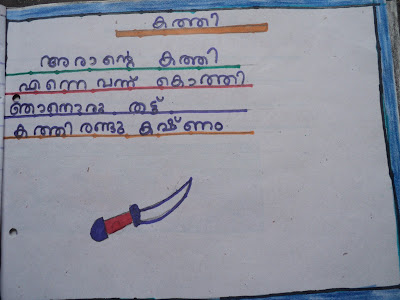 കത്തി
അരാന്റെ കത്തി
എന്നെ വന്ന് കൊത്തി
ഞാനൊരു തട്ട്
കത്തി രണ്ടു കഷ്ണം